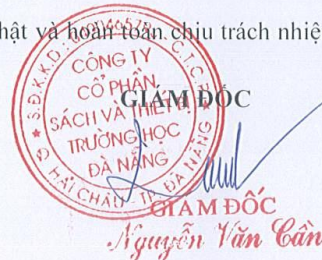 hật và hoàn toàn chịu trách nhiệ
GIÁM ĐỐC
S.Đ.K.K.D: C.T.C.P
CÔNG TY
CỔ PHẦN
SÁCH VÀ THIẾT BỊ
TRƯỜNG HỌC
ĐÀ NẴNG
Q HẢI CHÂU - TP. ĐÀ NẴNG
GIÁM ĐỐC
Nguyễn Văn Cần